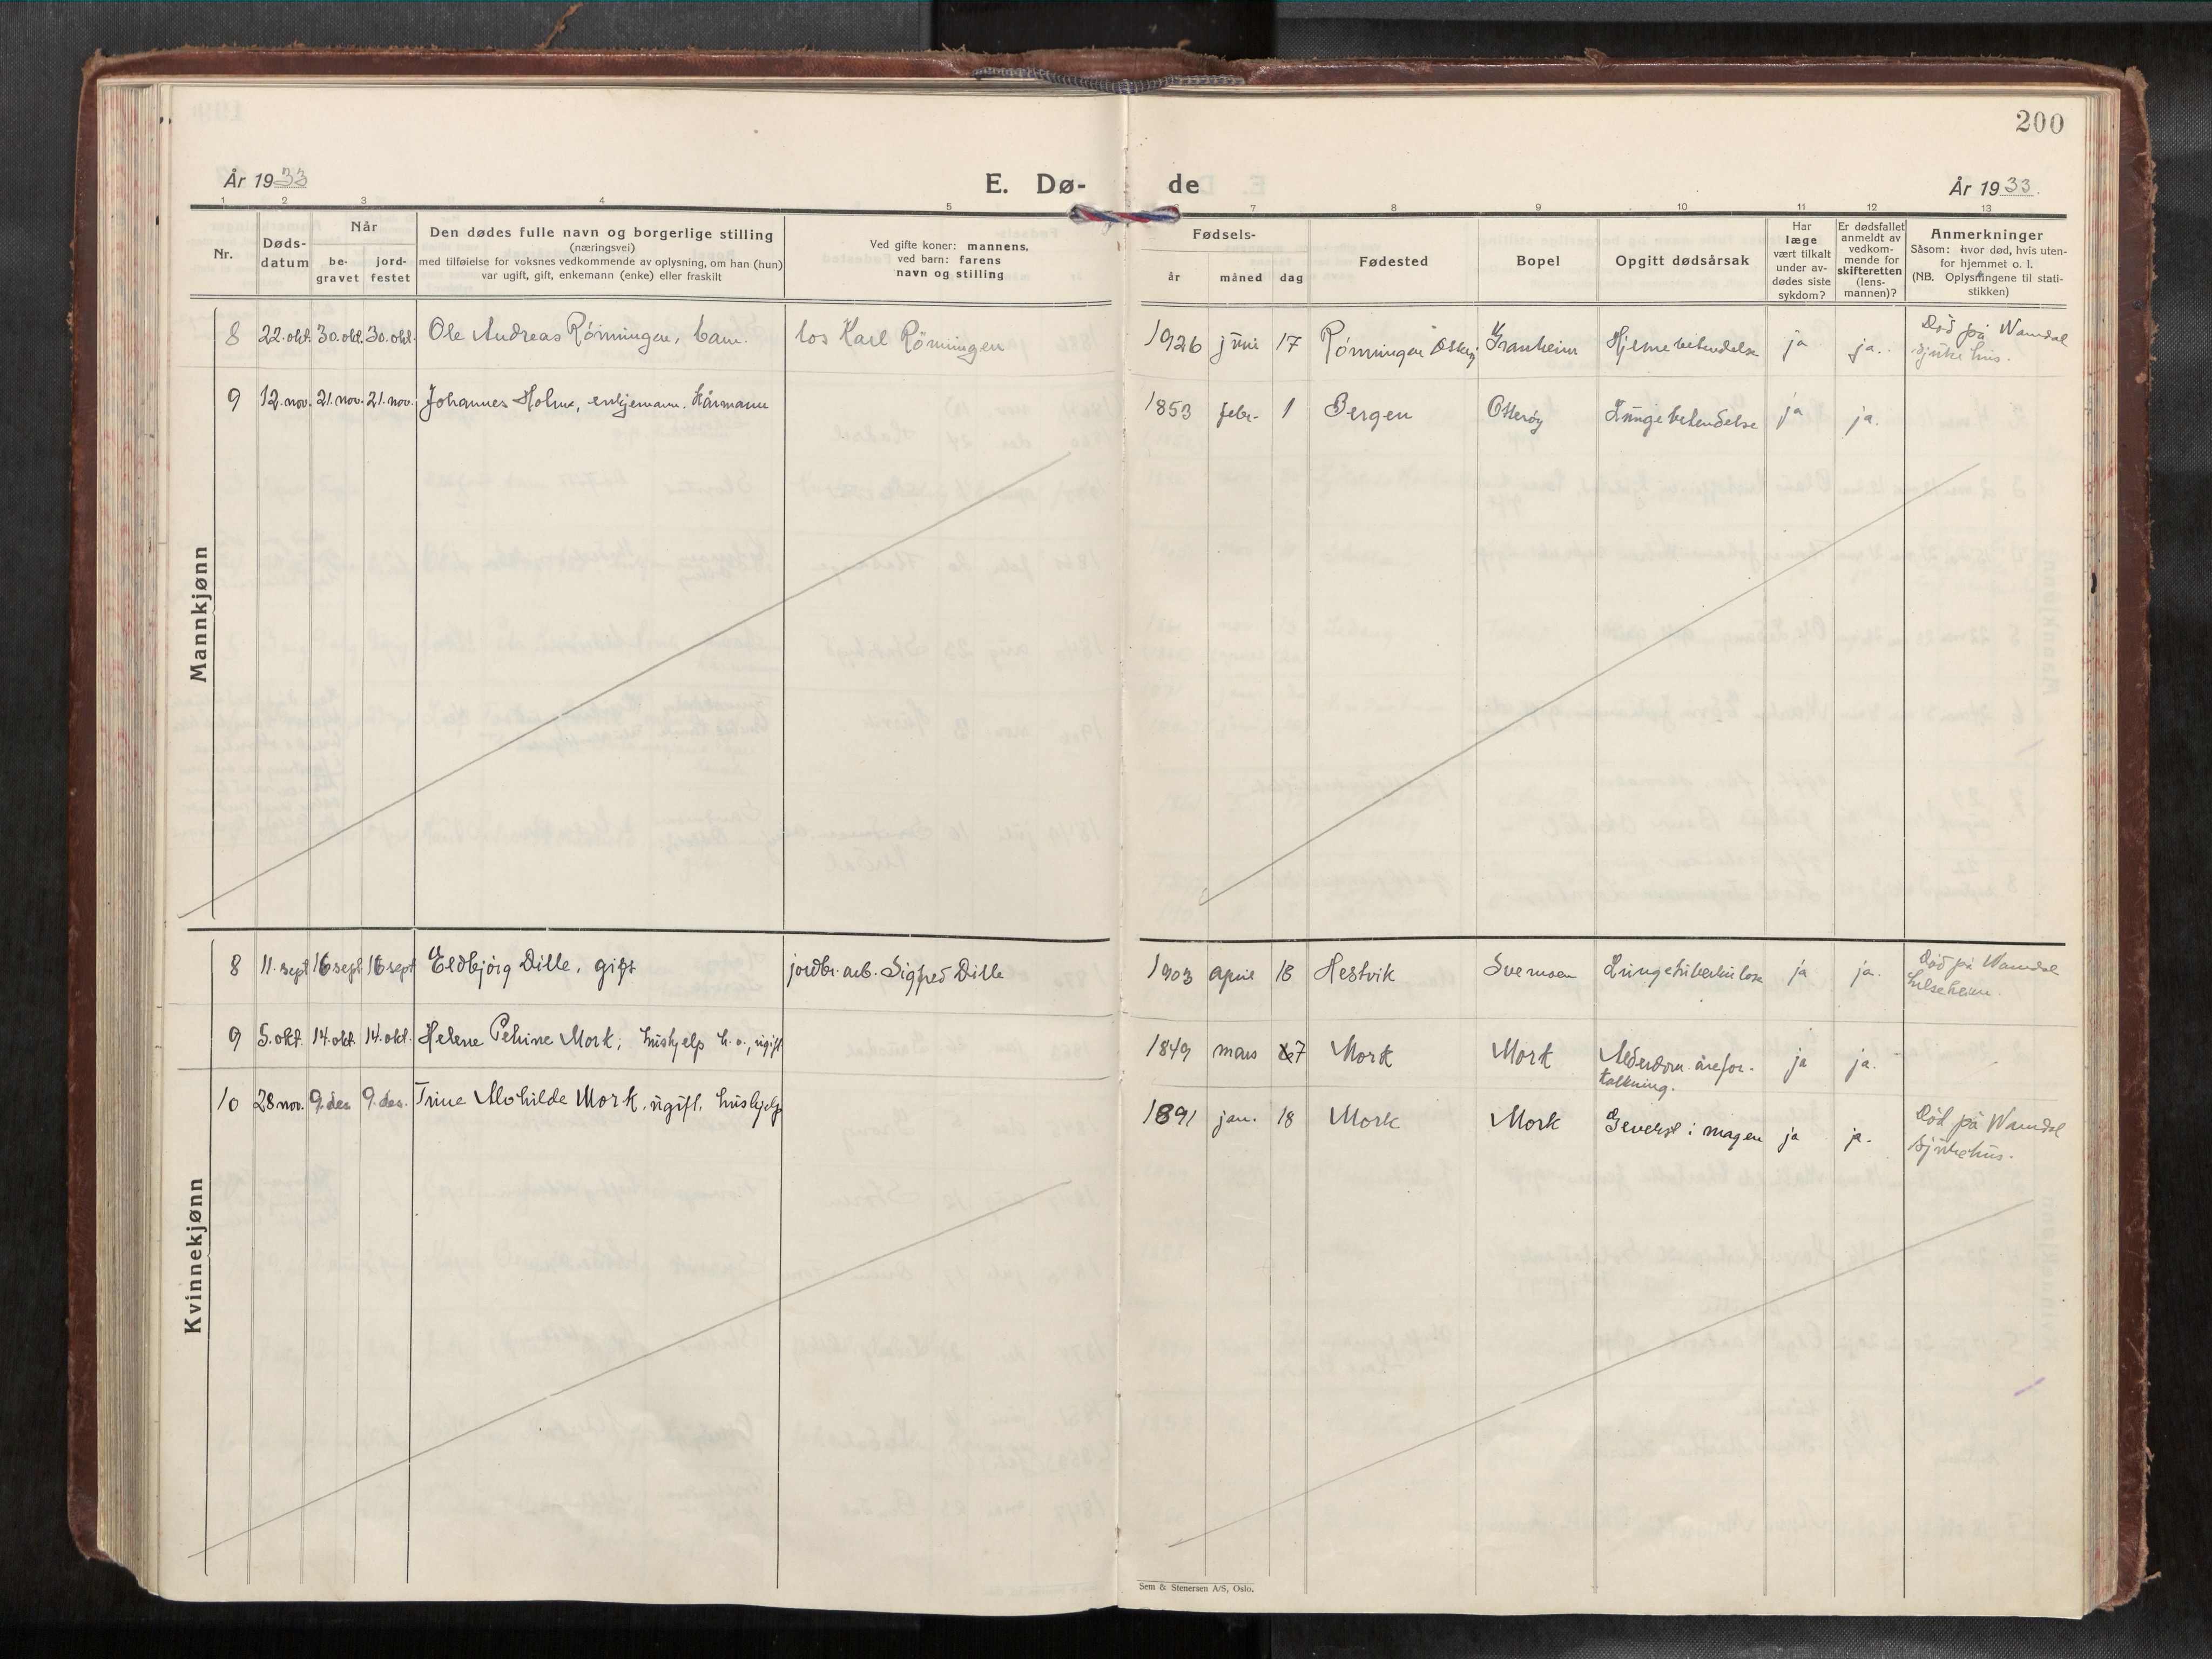 200
År 1933
E. Dø-
de
År 1933.
1 2 3 4 5 6 7 8 9 10 11 12 13
Nr.
Døds-
datum
Når
be-
gravet
jord-
festet
Den dødes fulle navn og borgerlige stilling
(næringsvei)
med tilføielse for voksnes vedkommende av oplysning, om han (hun)
var ugift, gift, enkemann (enke) eller fraskilt
Ved gifte koner: mannens,
ved barn: farens
navn og stilling
Fødsels-
år
måned
dag
Fødested
Bopel
Opgitt dødsårsak
Har
læge
vært tilkalt
under av-
dødes siste
sykdom?
Er dødsfallet
anmeldt av
vedkom-
mende for
skifteretten
(lens-
mannen)?
Anmerkninger
Såsom: hvor død, hvis uten-
for hjemmet o. l.
(NB. Oplysningene til stati-
stikken)
Mannkjønn
8 22. okt. 30. okt. 30. okt. Ole Andreas Rönningen, barn. los Karl Rönningen 1926 juni 17 Rönningen Otterøy Granheim Hjernebetendelse ja ja. Död på Namdal
sjukehus.
9 12. nov. 21. nov. 21. nov. Johannes Holm, enkjemann. Kårmann 1853 febr. 1 Bergen Otterøy Lungebetendelse ja ja.
Kvinnekjønn
8 11. sept 16 sept 16 sept Eldbjörg Dille, gift jordbr.arb. Sigfred Dille 1903 april 18 Hestvik Svemoen Lungetuberkulose ja ja. Död på Namdal
helseheim.
9 5. okt. 14. okt. 14. okt. Helene Petrine Mork, hushjelp h. o., ugift 1849 mars 27 Mork Mork Alderdom. årefor-
kalkning. ja ja.
10 28 nov. 9. des. 9. des. Trine Mohilde Mork, ugift, hushjelp 1891 jan. 18 Mork Mork Gevekst i magen ja ja. Död på Namdal
sjukehus.
Sem & Stenersen A/S, Oslo.